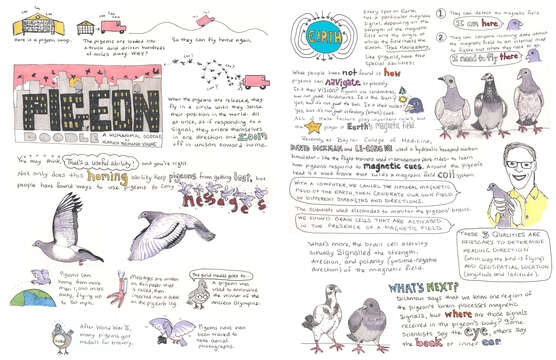 Here is a pigeon range.
The pigeons are loaded into
a truck and driven hundreds
of miles away. Why?
So they can fly home again.
PIGEON
DOODLE
When the pigeons are released, they
fly in a circle until they sense
their position in the world. All
at once, as if responding to a
signal, they orient themselves
in one direction and zoom
off in unison toward home.
We may think, That's a useful ability! and you're right.
Not only does this homing ability keep pigeons from getting lost, but
people have found ways to use pigeons to carry
Messages
Pigeons can
home from more
than 1,000 miles
away, flying up
to 50 mph.
Messages are written
on thin paper that
is rolled, then
inserted into a tube
on the pigeon's leg.
The gold medal goes to...
A pigeon was
used to announce
the winner of the
ancient Olympics.
After World War I,
many pigeons got
medals for bravery.
Pigeons have even
been trained to
take aerial
photographs.
EARTH
Every spot on Earth
has a particular magnetic
signal, depending on
the strength of the magnetic
field and the angle at
which the field meets the
Earth.
Like pigeons, have two
special abilities:
1 They can detect the magnetic field.
I am here.
2 They can compare incoming data about
the magnetic field to an internal map
to figure out where they need to go.
I need to fly there!
What people have not found is how
pigeons can navigate so precisely.
Is it the vision? Pigeons use landmarks,
but not just landmarks. Is it the sun?
yes, but it's not just the sun. Is it their noses?
yes, but it's not just olfactory (smell) cues.
All of these factors play important roles, but
the star player is Earth's magnetic field.
Recently, at Baylor College of Medicine,
David Dickman and Le-Qing Wu used a hydraulic hexapod motion
simulator - like the flight trainers used
how pigeons respond to magnetic cues. Around the pigeon's
head is a wood frame that holds a magnetic field coil system.
With a computer, we cancel the natural magnetic
field of the Earth, then generate our own field
of different strengths and directions.
The scientists used electrodes to monitor the pigeons' brains.
We found brain cells that are activated
in the presence of a magnetic field.
What's more, the brain cell activity
actually signalled the strength,
direction, and polarity (positive-negative
direction) of the magnetic field.
These 3 qualities are
necessary to determine
heading direction
(which way the bird is flying)
and geospatial location
(longitude and latitude).
WHAT'S NEXT?
Dickman says that we know one region of
the pigeon's brain processes magnetic
signals, but where are those signals
received in the pigeon's body? Some
scientists say the eye, others say
the beak or inner ear.